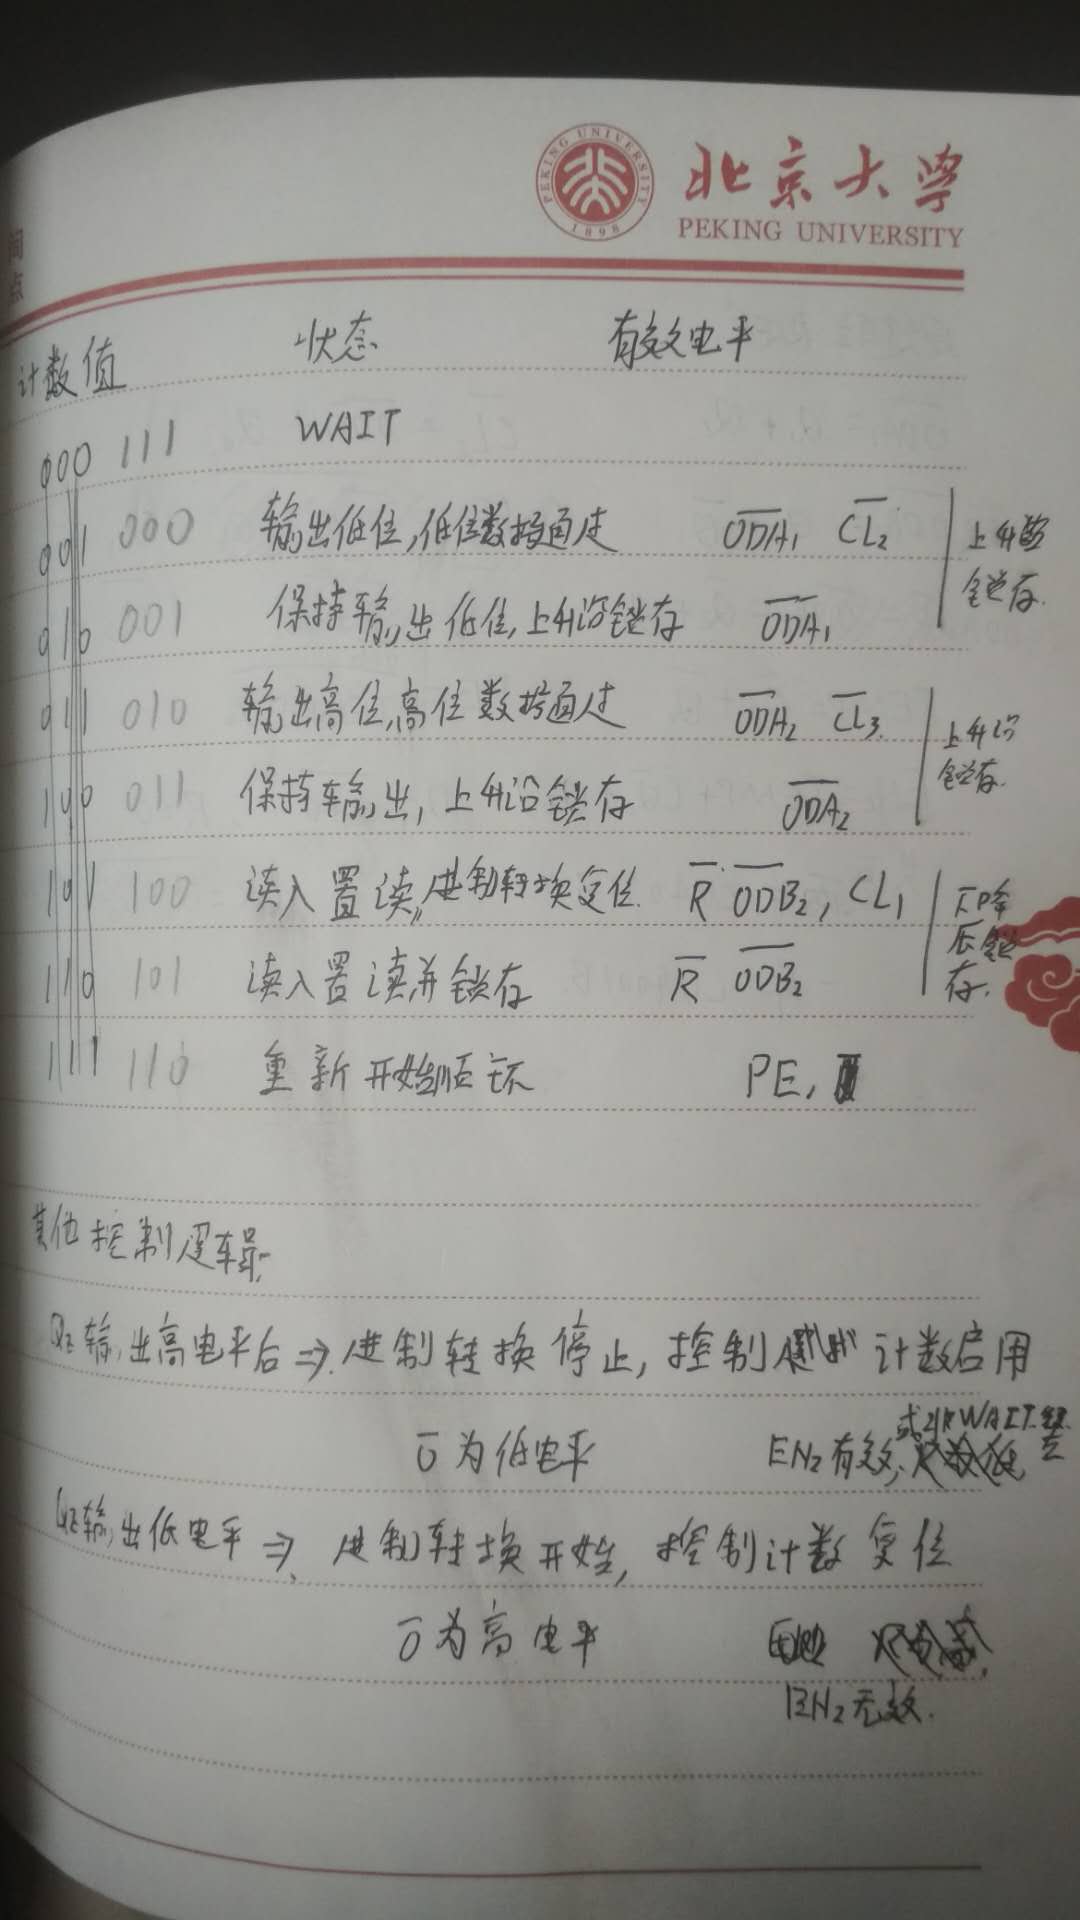 PEKING UNIVERSITY
1898
北京大学
PEKING UNIVERSITY
计数值 状态 有效电平
000 111 WAIT
001 000 输出低位,低位数据通过 ODA₁ CL₂ 上升沿锁存.
010 001 保持输出低位,上升沿锁存 ODA₁
011 010 输出高位,高位数据通过 ODA₂ CL₃. 上升沿锁存.
100 011 保持输出,上升沿锁存 ODA₂
101 100 读入置读,进制转换复位. R ODB₂, CL₁ 下降沿锁存.
110 101 读入置读并锁存 R ODB₂
111 110 重新开始循环 PE,
其他控制逻辑:
输出高电平后⇒.进制转换停止,控制 计数启用
O为低电平 EN₂有效, 或非WAIT
输出低电平⇒. 进制转换开始,控制计数复位
O为高电平
EN₂无效.